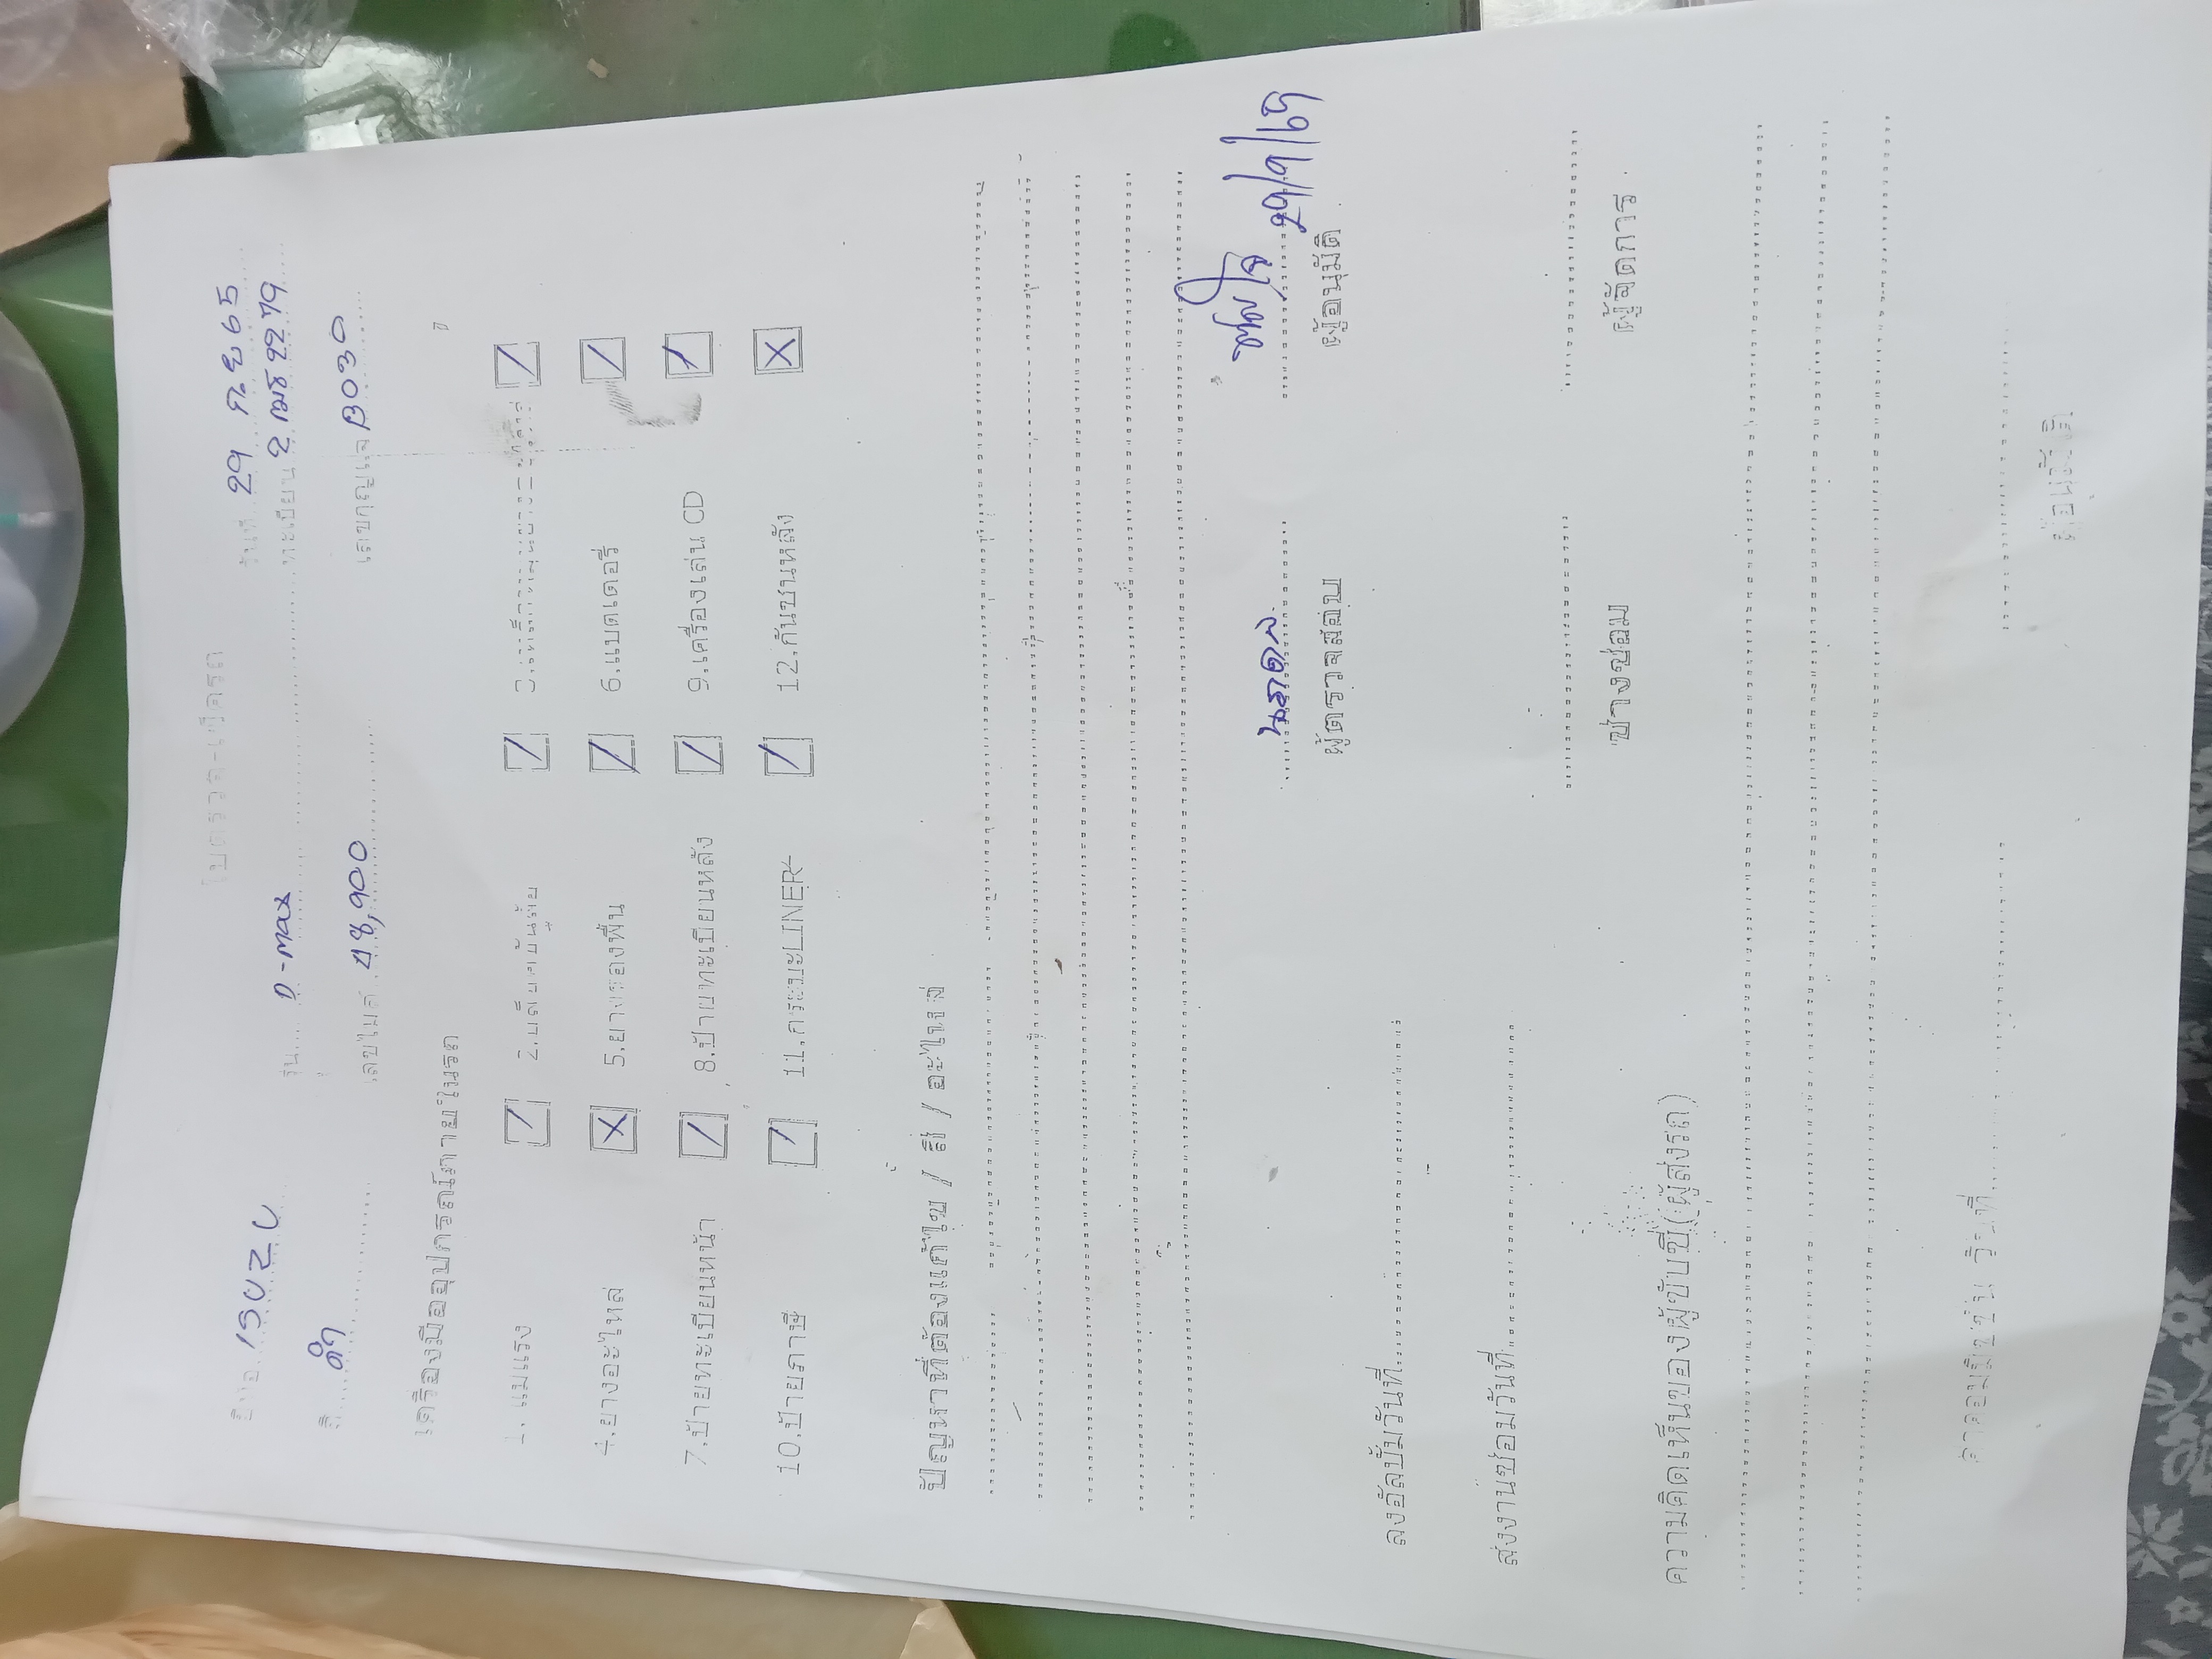 ใบตรวจเช็ครถ
วันที่ 29 กย 65
ยี่ห้อ ISUZU รุ่น D-max ทะเบียน 2 เมธ 2279
สี ดำ เลขไมล์ 48,900 เลขกุญแจ B030
เครื่องมืออุปกรณ์ภายในรถ
1.แม่แรง / 2.เข็มขัดนิรภัย / 3. /
4.ยางอะไหล่ X 5.ยางรองพื้น / 6.แบตเตอรี่ /
7.ป้ายทะเบียนหน้า / 8.ป้ายทะเบียนหลัง / 9.เครื่องเล่น CD /
10.ป้ายภาษี / 11.กระบะLINER / 12.กันชนหลัง X
ปัญหาที่ต้องแก้ไข / สี / อะไหล่
29/9/65
ผู้ตรวจสอบ ผู้อนุมัติ
ลงอัลบั้มวันที่
ส่งงานซ่อมวันที่
ช่างซ่อม ผู้จัดการ
ความคิดเห็นของผู้ขับขี่(ผู้ส่งรถ)
วันที่
ผู้อนุมัติ